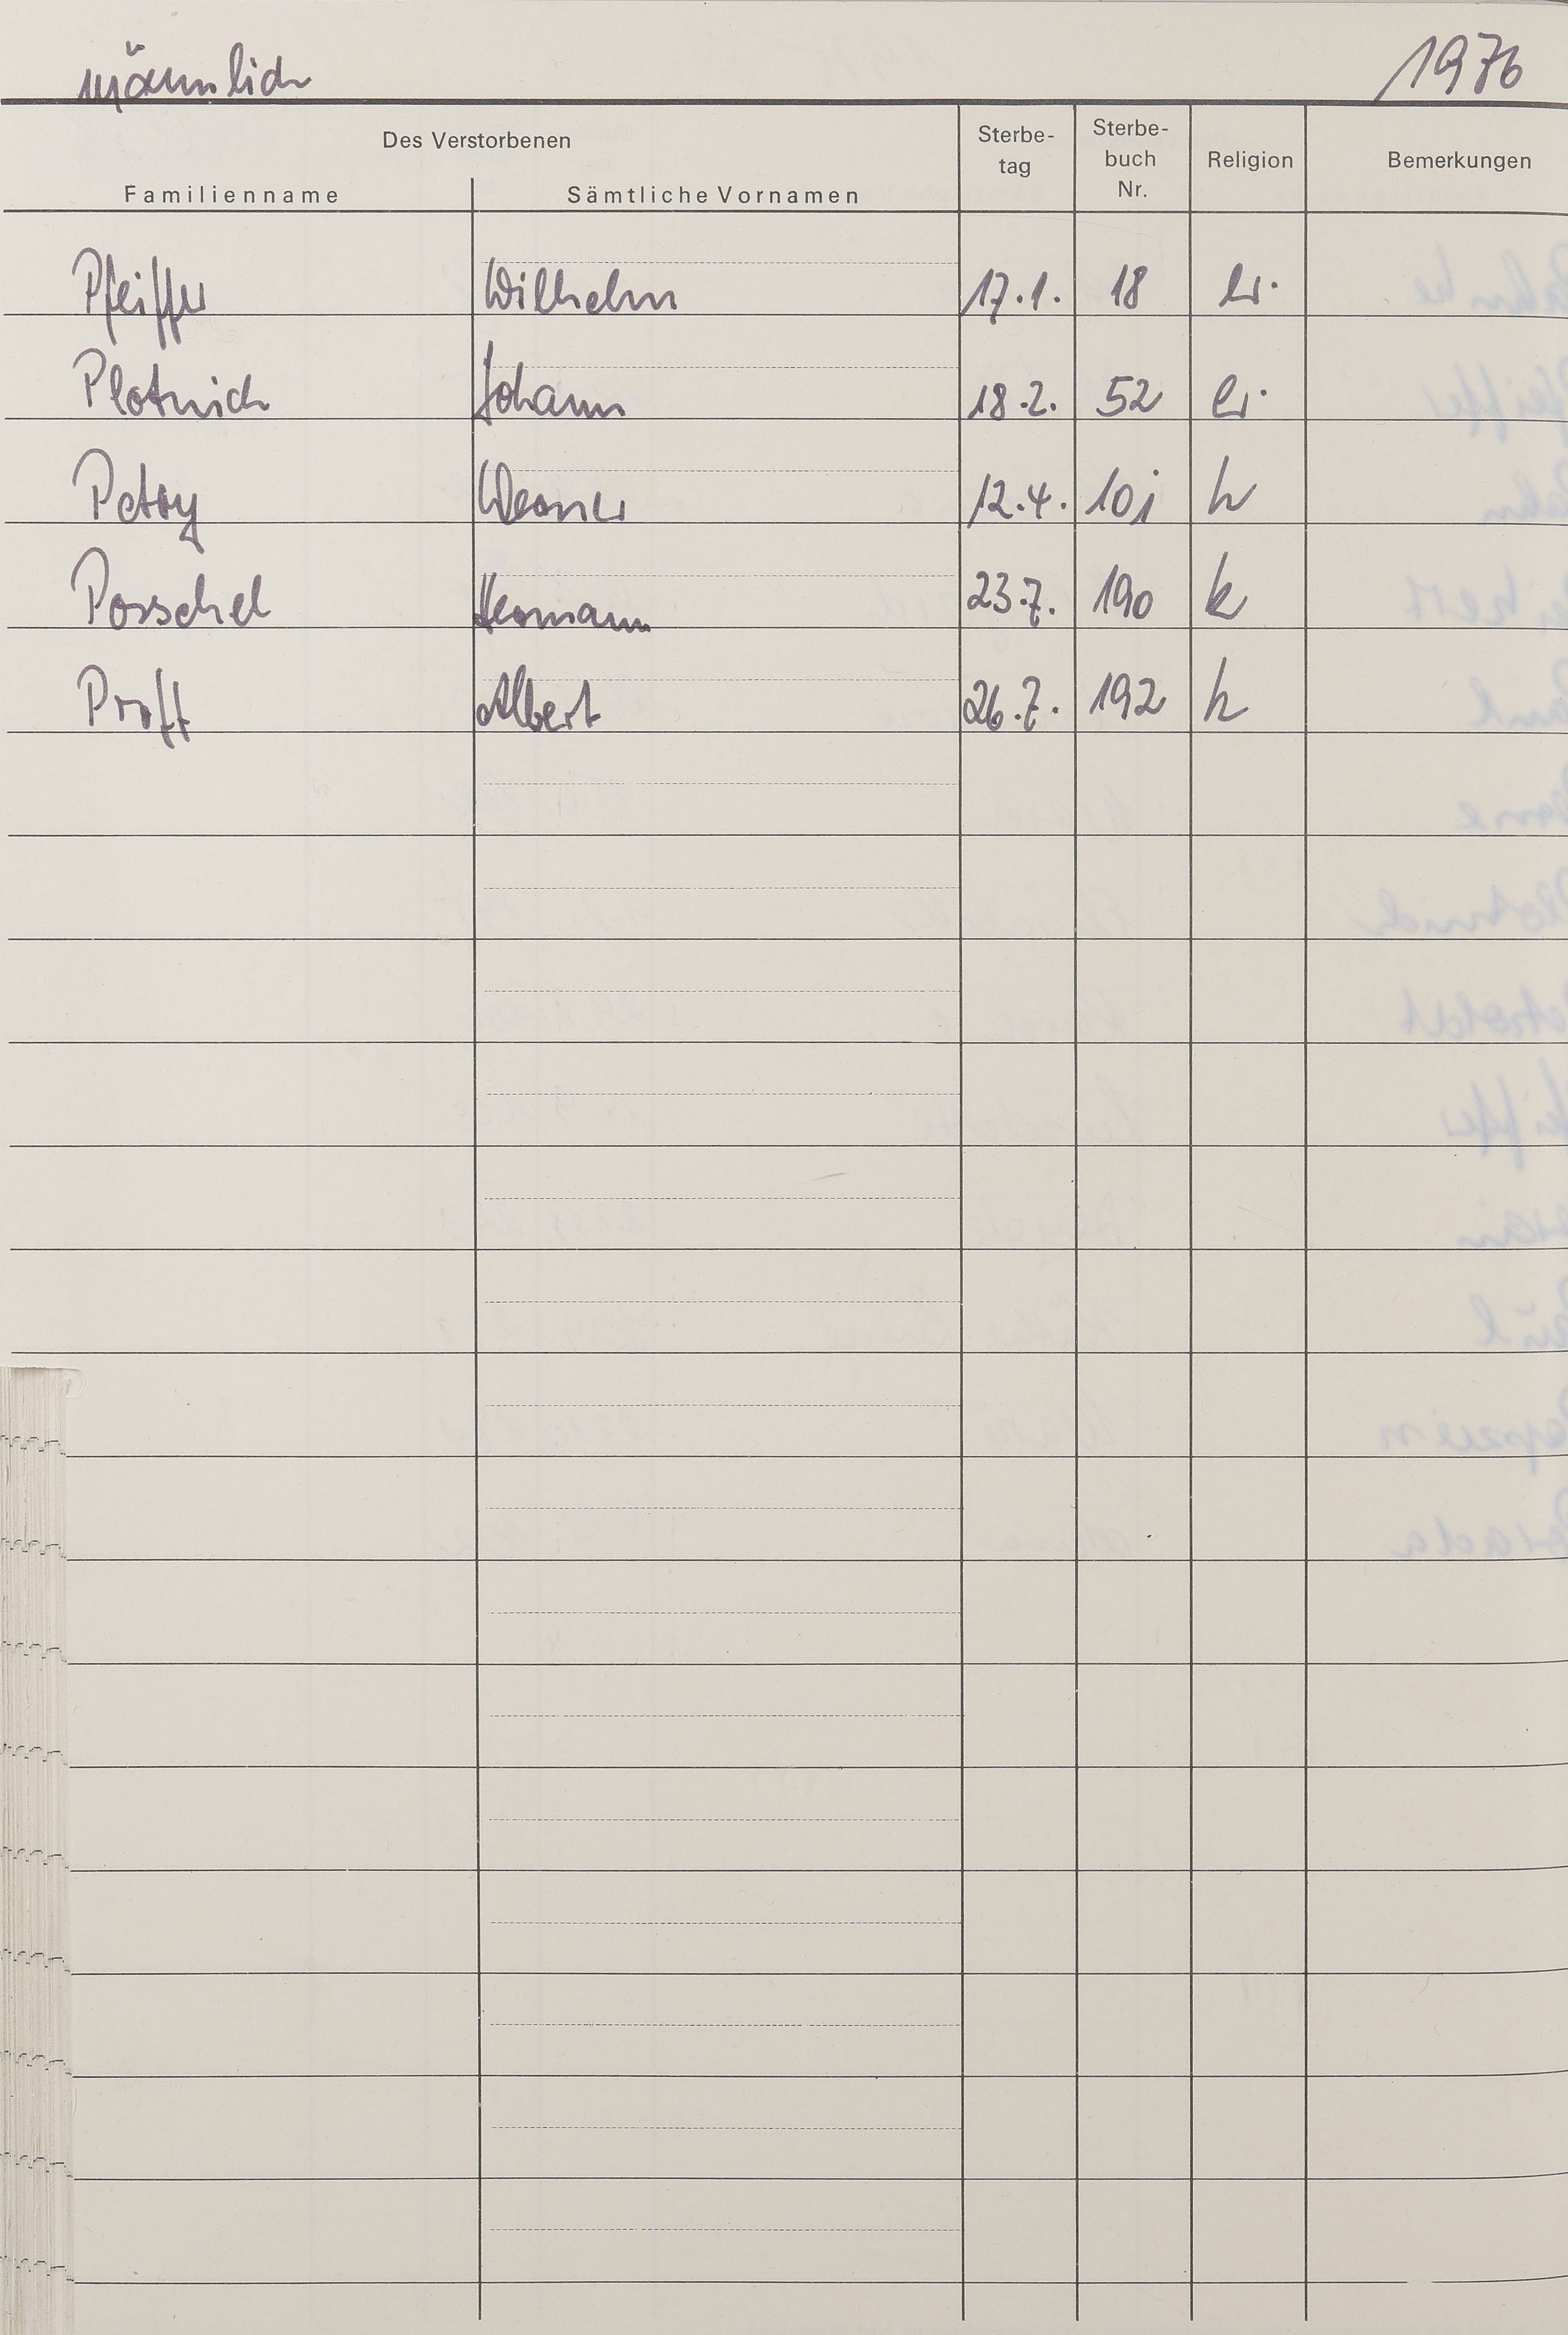 männlich 1976
Des Verstorbenen Sterbe- tag Sterbe- buch Nr. Religion Bemerkungen
Familienname Sämtliche Vornamen
Pfeiffer Wilhelm 17.1. 18 ev.
Plotnich Johann 18.2. 52 ev.
Petry Werner 12.4. 101 k
Posschel Hermann 23.7. 190 k
Proff Albert 26.7. 192 k